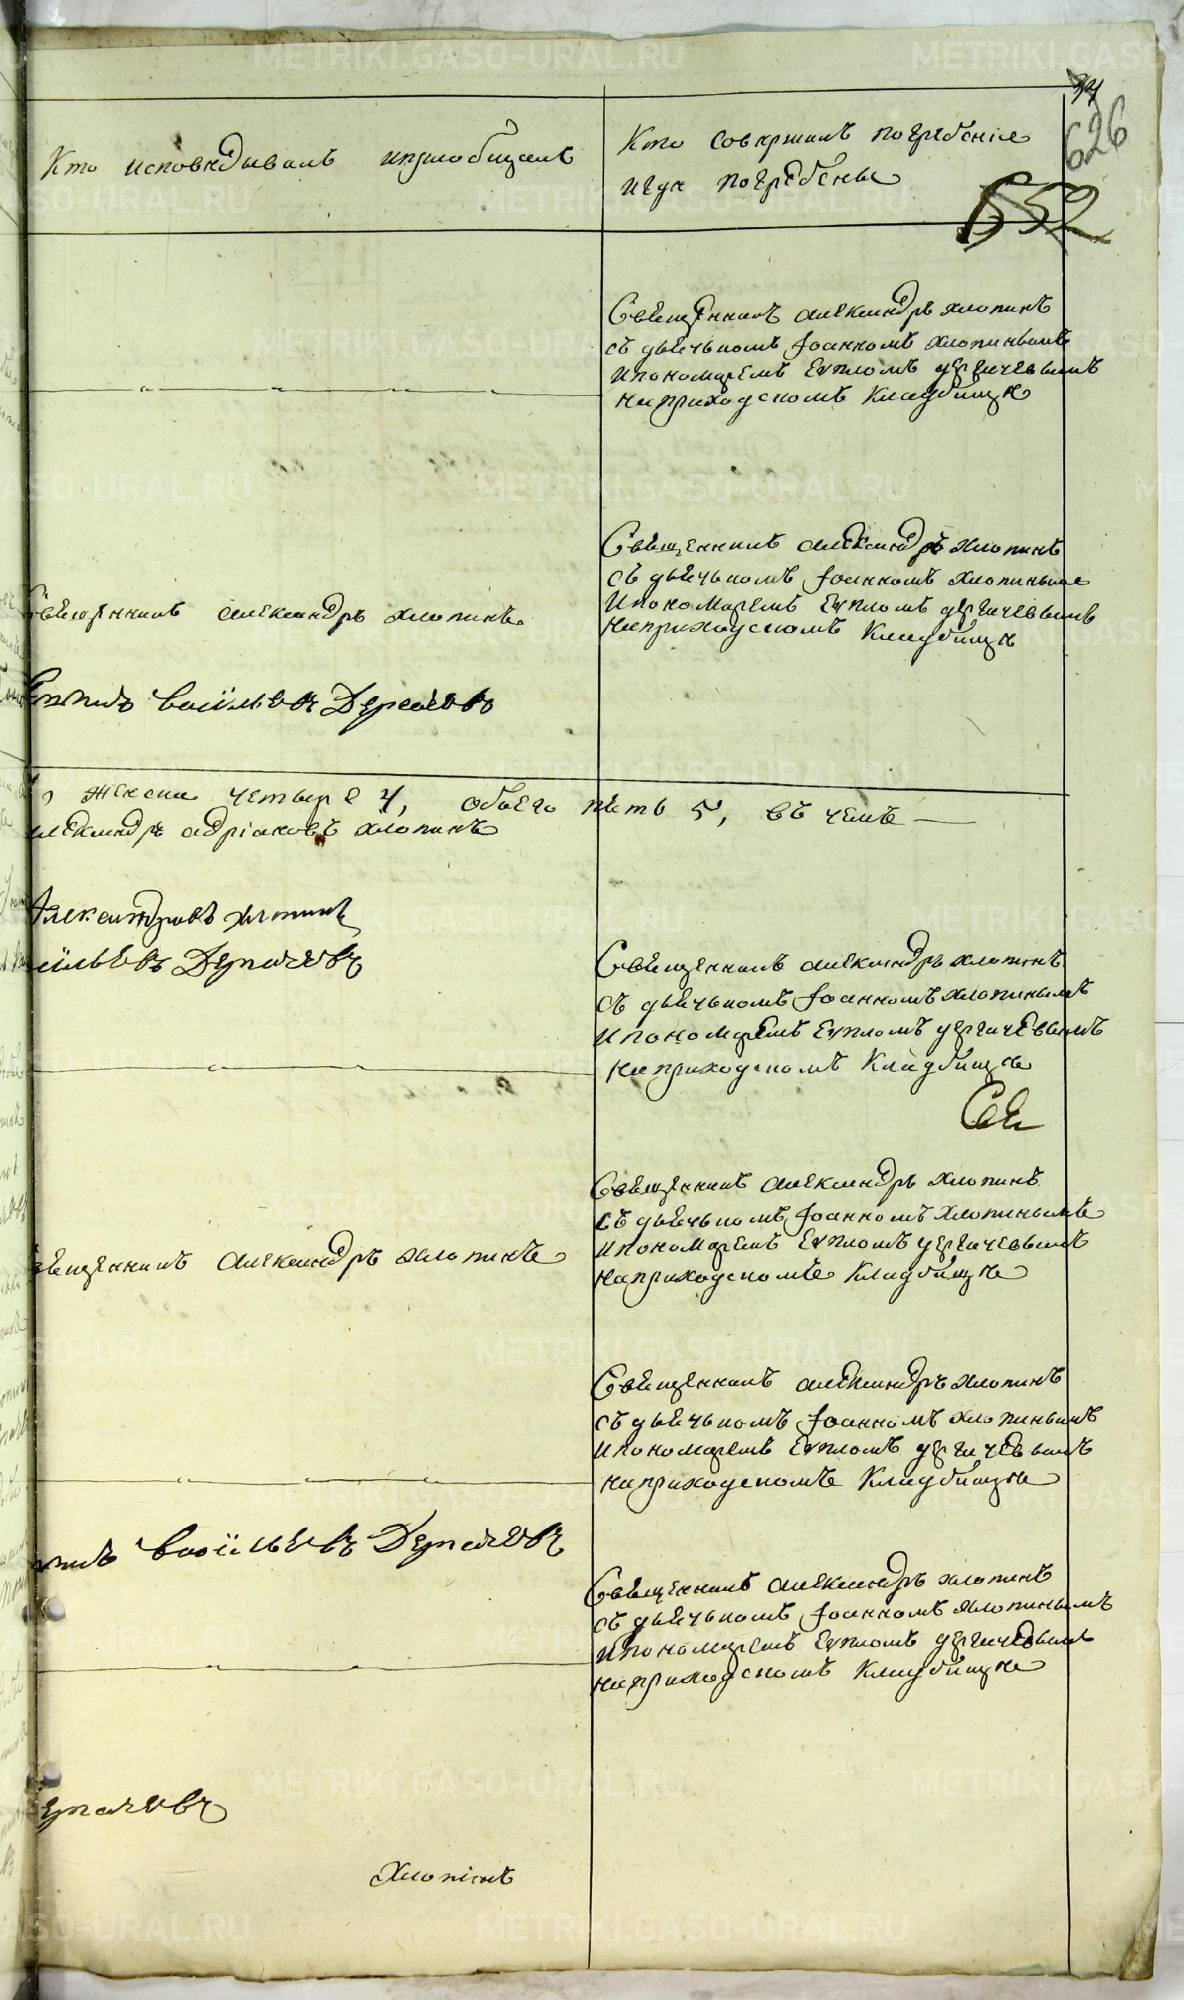 37
626
652
Кто исповѣдывалъ и приобщалъ
Кто совершалъ погребеніе
и гдѣ погребены
Священникъ Александръ Хлопинъ
съ дьячькомъ Іоанномъ Хлопинымъ
и пономаремъ Еупломъ Дерпачевымъ
на приходскомъ кладбищѣ
Священникъ Александръ Хлопинъ
съ дьячькомъ Іоанномъ Хлопинымъ
и пономаремъ Еупломъ Дерпачевымъ
на приходскомъ кладбищѣ
Священникъ Александръ Хлопинъ
Васильевъ
женска четыре 4, обоего пять 5, въ чемъ
Александръ Адріановъ Хлопинъ
Александровъ Хлопинъ
Священникъ Александръ Хлопинъ
съ дьячькомъ Іоанномъ Хлопинымъ
и пономаремъ Еупломъ Дерпачевымъ
на приходскомъ кладбищѣ
Священникъ Александръ Хлопинъ
съ дьячькомъ Іоанномъ Хлопинымъ
и пономаремъ Еупломъ Дерпачевымъ
на приходскомъ кладбищѣ
Священникъ Александръ Хлопинъ
Священникъ Александръ Хлопинъ
съ дьячькомъ Іоанномъ Хлопинымъ
и пономаремъ Еупломъ Дерпачевымъ
на приходскомъ кладбищѣ
Васильевъ
Священникъ Александръ Хлопинъ
съ дьячькомъ Іоанномъ Хлопинымъ
и пономаремъ Еупломъ Дерпачевымъ
на приходскомъ кладбищѣ
Хлопинъ
METRIKI.GASO-URAL.RU